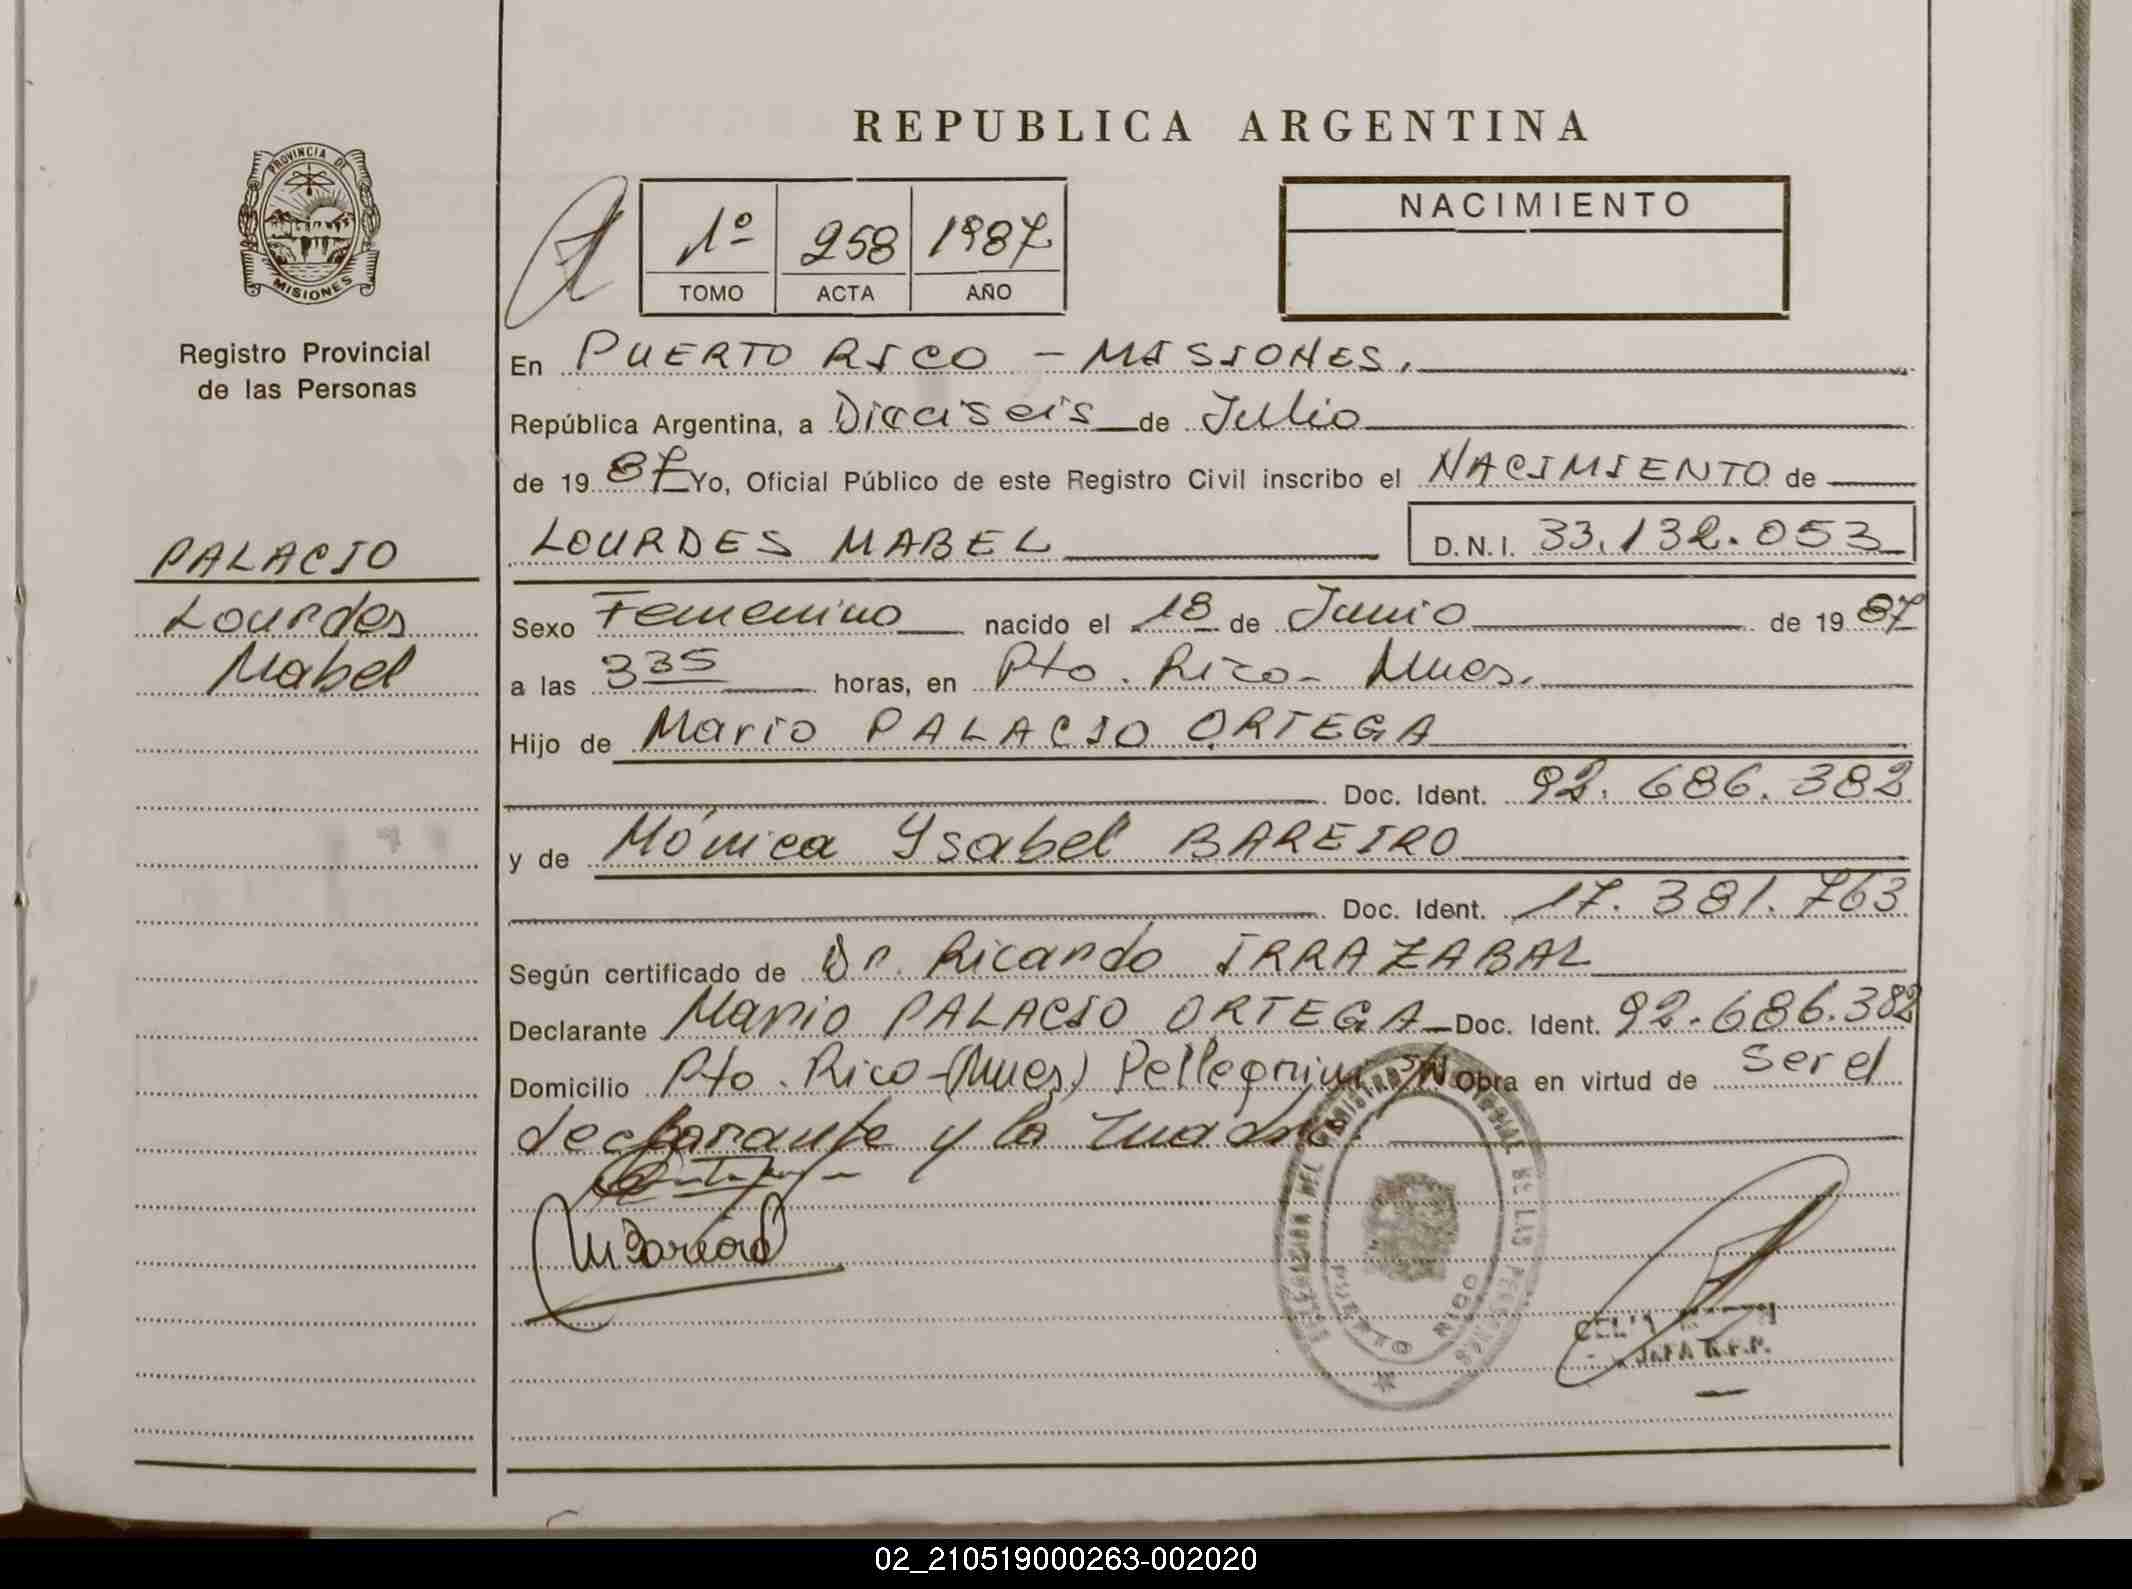 REPUBLICA ARGENTINA
PROVINCIA DE
MISIONES
Registro Provincial
de las Personas
1º 258 1987
TOMO ACTA AÑO
NACIMIENTO
En PUERTO RICO - MISIONES.
República Argentina, a Dieciseis de Julio
de 1987 Yo, Oficial Público de este Registro Civil inscribo el NACIMIENTO de
PALACIO
Lourdes
Mabel
LOURDES MABEL D.N.I. 33.132.053
Sexo Femenino nacido el 18 de Junio de 1987
a las 335 horas, en Pto. Rico - Mnes.
Hijo de Mario PALACIO ORTEGA
Doc. Ident. 92.686.382
y de Mónica Ysabel BAREIRO
Doc. Ident. 17.381.763
Según certificado de Dr. Ricardo IRRAZABAL
Declarante Mario PALACIO ORTEGA Doc. Ident. 92.686.382
Domicilio Pto. Rico - (Mnes) Pellegrini S/N Obra en virtud de ser el
declarante y la madre.
PUERTO RICO
JEFA R.P.P.
02_210519000263-002020